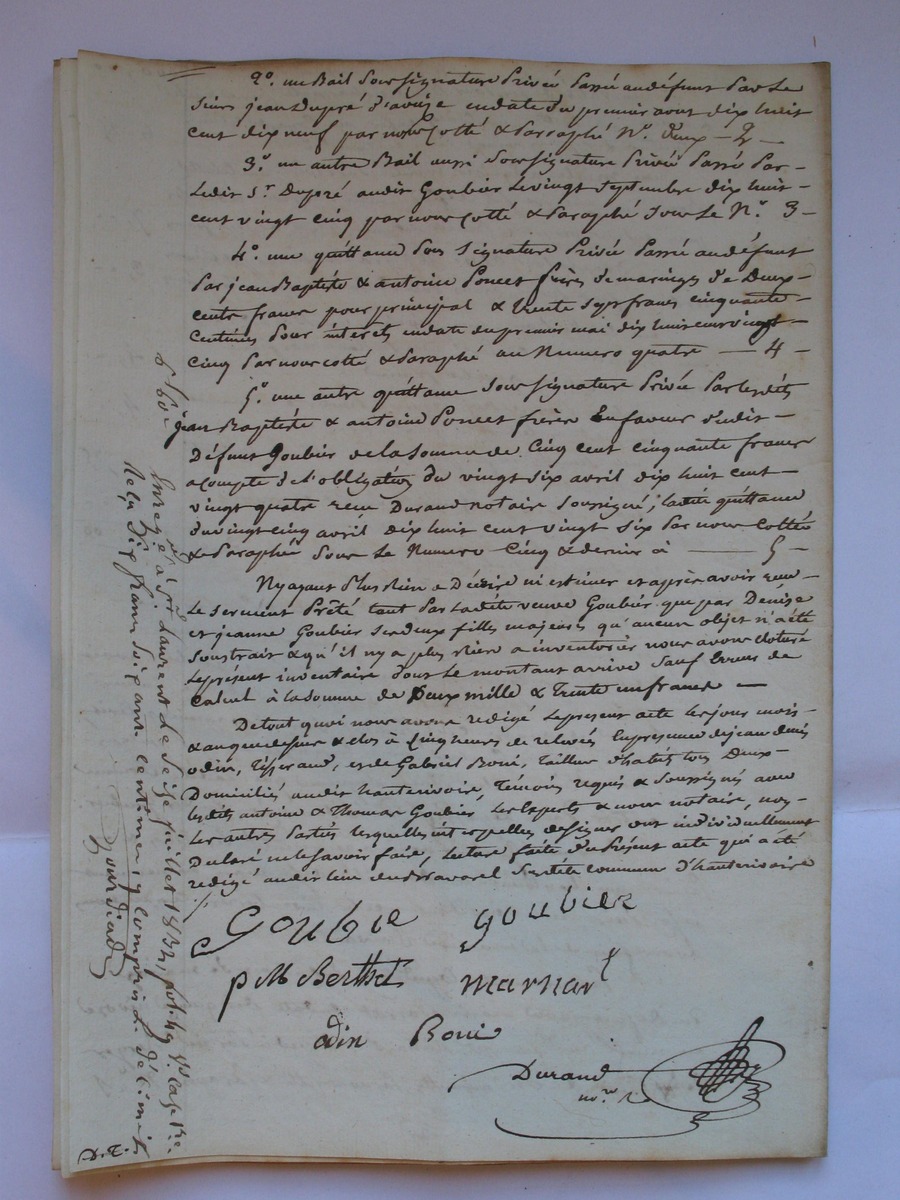 2°. un Bail Sous signature Privée Passé au défunt Par Le
sieur jean Dupré d'avaize en date du premier aout dix huit
cent dix neuf par nous Cotté & Paraphé N°. deux — 2 —
3°. un autre Bail aussi Sous signature Privée Passé Par
Ledit Sr. Dupré audit Goubier Le vingt Septembre dix huit
cent vingt cinq par nous Cotté & Paraphé sous Le N°. 3 —
4°. une quittance Sous signature Privée Passée au défunt
Par jean Baptiste & antoine Poncet frères de maringes de Deux
cents francs pour principal & trente sept francs cinquante
centimes Pour interets en date du premier mai dix huit cent vingt
cinq Par nous cotté & Paraphé au Numero quatre — 4 —
5°. une autre quittance Sous signature Privée Par lesdits
jean Baptiste & antoine Poncet frères En faveur dudit
Défunt Goubier de la Somme de Cinq cent cinquante francs
acompte de l'obligation du vingt six avril dix huit cent
vingt quatre recu Durand notaire soussigné, ladite quittance
du vingt cinq avril dix huit cent vingt six Par nous Cottée
& Paraphée Sous Le Numero Cinq & dernier à — 5 —
N'y ayant Plus Rien a Décrire ni estimer et après avoir
Le serment Prêté tant Par Ladite veuve Goubier que par Denise
et jeanne Goubier ses deux filles majeures qu'aucun objet n'a été
soustrait & qu'il n'y a plus rien a inventorier nous avons cloturé
Le présent inventaire dont Le montant arrive Sauf Erreur de
Calcul à la somme de Deux mille & trente un francs —
De tout quoi nous avons redigé Le présent acte les jour mois
& an que dessus & clos à Cinq heures de relevée En présence de jean denis
odin, tisserand, et de Gabriel Boni, tailleur d'habits tous Deux
Domiciliés audit hauterivoire, témoins requis & soussignés avec
lesdits antoine & Thomas Goubier Les Experts & nous notaire, non
Les autres Parties lesquelles interpellées de signer ont individuellement
Déclaré ne le savoir faire, Lecture faite du Présent acte qui a été
redigé audit lieu du susdite commune d'hauterivoire
Goubie goubier
p M Berthet marnar
odin Boni
Durand
nore
Enregé à St. Laurent Le Seize juillet 1832, fol. 49 Vo. Case 1re.
Reçu Dix francs soixante centimes, y compris L. décimes
Gourdiad
D. T.